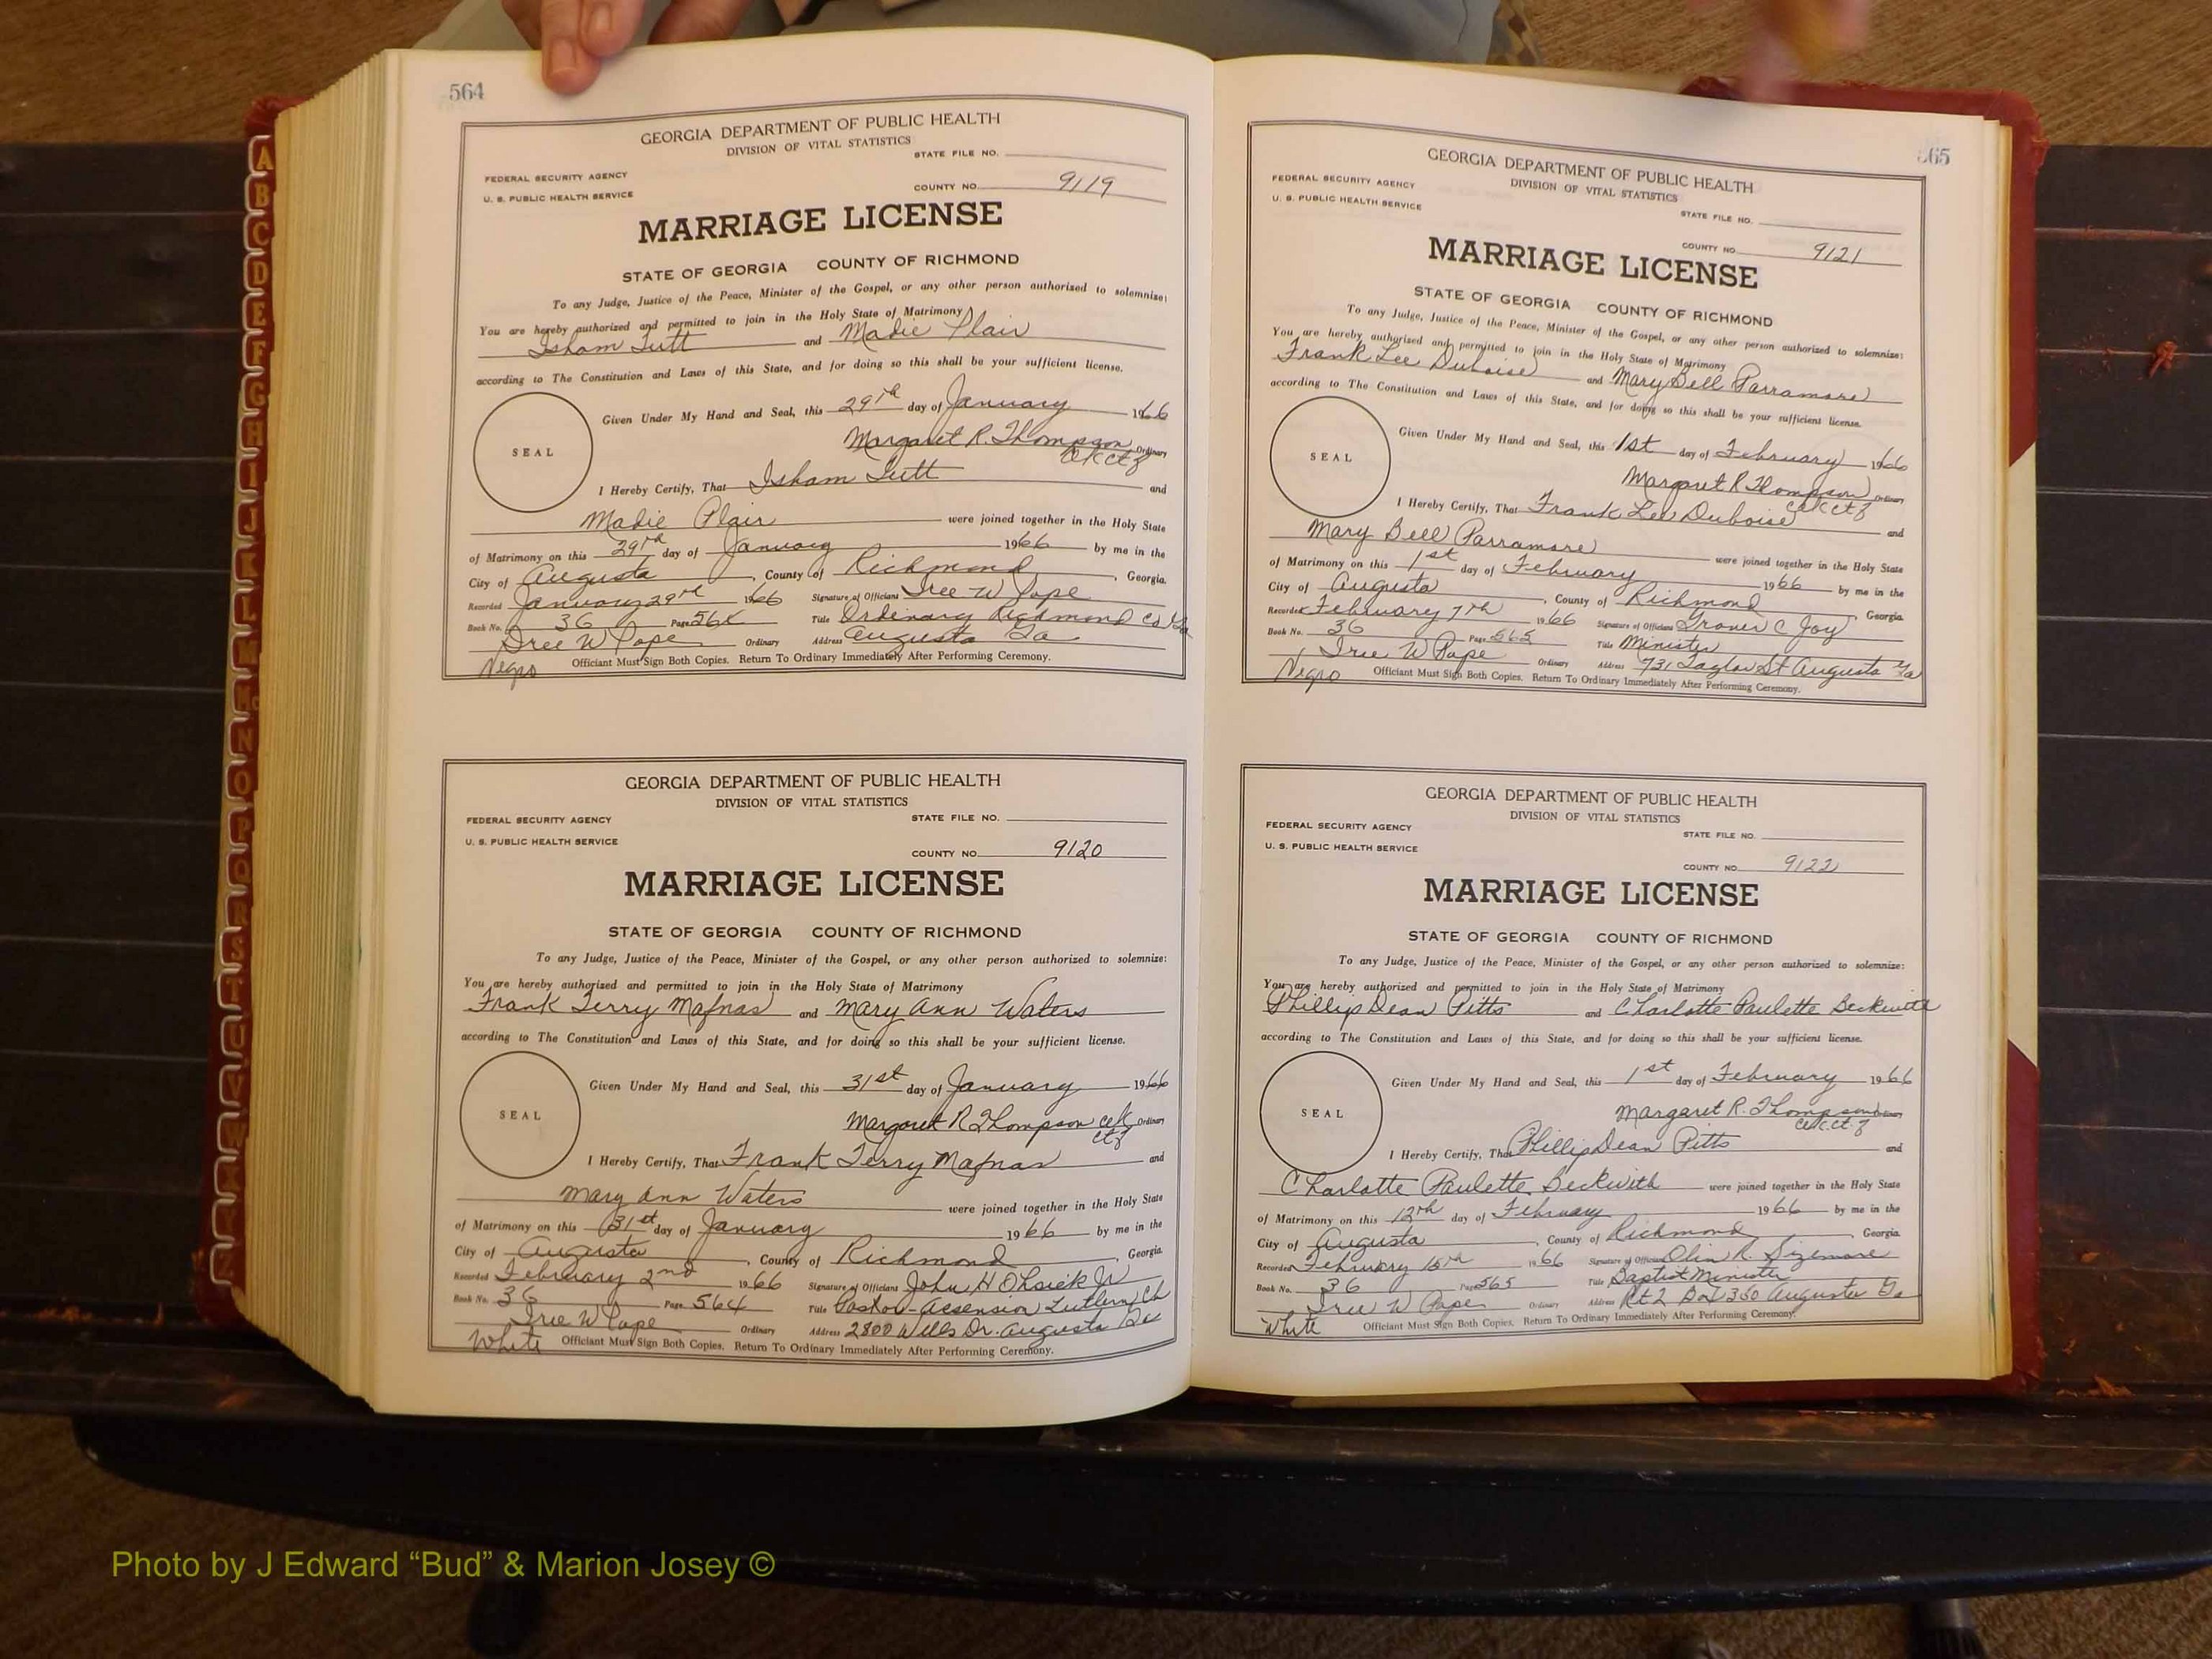 564
GEORGIA DEPARTMENT OF PUBLIC HEALTH
DIVISION OF VITAL STATISTICS
STATE FILE NO.
FEDERAL SECURITY AGENCY
U. S. PUBLIC HEALTH SERVICE
COUNTY NO. 9119
MARRIAGE LICENSE
STATE OF GEORGIA COUNTY OF RICHMOND
To any Judge, Justice of the Peace, Minister of the Gospel, or any other person authorized to solemnize:
You are hereby authorized and permitted to join in the Holy State of Matrimony
Isham Tutt and Madie Plair
according to The Constitution and Laws of this State, and for doing so this shall be your sufficient license.
SEAL
Given Under My Hand and Seal, this 29th day of January 1966
Margaret R. Thompson Ordinary
I Hereby Certify, That Isham Tutt and
Madie Plair were joined together in the Holy State
of Matrimony on this 29th day of January 1966 by me in the
City of Augusta, County of Richmond, Georgia.
Recorded January 29th 1966 Signature of Officiant Iree W Pope
Book No. 36 Page 564 Title Ordinary Richmond Co Ga
Iree W Pope Ordinary Address Augusta Ga
Negro Officiant Must Sign Both Copies. Return To Ordinary Immediately After Performing Ceremony.
GEORGIA DEPARTMENT OF PUBLIC HEALTH
DIVISION OF VITAL STATISTICS
FEDERAL SECURITY AGENCY STATE FILE NO.
U. S. PUBLIC HEALTH SERVICE
COUNTY NO. 9120
MARRIAGE LICENSE
STATE OF GEORGIA COUNTY OF RICHMOND
To any Judge, Justice of the Peace, Minister of the Gospel, or any other person authorized to solemnize:
You are hereby authorized and permitted to join in the Holy State of Matrimony
Frank Terry Mafnas and Mary Ann Waters
according to The Constitution and Laws of this State, and for doing so this shall be your sufficient license.
SEAL
Given Under My Hand and Seal, this 31st day of January 1966
Margaret R Thompson Ordinary
I Hereby Certify, That Frank Terry Mafnas and
Mary Ann Waters were joined together in the Holy State
of Matrimony on this 31st day of January 1966 by me in the
City of Augusta, County of Richmond, Georgia.
Recorded February 2nd 1966 Signature of Officiant John H Jr
Book No. 36 Page 564 Title Pastor-Acsension Ch
Iree W Pope Ordinary Address 2800 Wells Dr. Augusta Ga
White Officiant Must Sign Both Copies. Return To Ordinary Immediately After Performing Ceremony.
565
GEORGIA DEPARTMENT OF PUBLIC HEALTH
DIVISION OF VITAL STATISTICS
FEDERAL SECURITY AGENCY
U. S. PUBLIC HEALTH SERVICE
STATE FILE NO.
COUNTY NO. 9121
MARRIAGE LICENSE
STATE OF GEORGIA COUNTY OF RICHMOND
To any Judge, Justice of the Peace, Minister of the Gospel, or any other person authorized to solemnize:
You are hereby authorized and permitted to join in the Holy State of Matrimony
Frank Lee Duboise and Mary Bell Parramore
according to The Constitution and Laws of this State, and for doing so this shall be your sufficient license.
SEAL
Given Under My Hand and Seal, this 1st day of February 1966
Margaret R Thompson Ordinary
I Hereby Certify, That Frank Lee Duboise and
Mary Bell Parramore were joined together in the Holy State
of Matrimony on this 1st day of February 1966 by me in the
City of Augusta, County of Richmond Georgia.
Recorded February 7th 1966 Signature of Officiant Grover C Joy
Book No. 36 Page 565 Title Minister
Iree W Pope Ordinary Address 731 Taylor St Augusta Ga
Negro Officiant Must Sign Both Copies. Return To Ordinary Immediately After Performing Ceremony.
GEORGIA DEPARTMENT OF PUBLIC HEALTH
DIVISION OF VITAL STATISTICS
FEDERAL SECURITY AGENCY STATE FILE NO.
U. S. PUBLIC HEALTH SERVICE
COUNTY NO. 9122
MARRIAGE LICENSE
STATE OF GEORGIA COUNTY OF RICHMOND
To any Judge, Justice of the Peace, Minister of the Gospel, or any other person authorized to solemnize:
You are hereby authorized and permitted to join in the Holy State of Matrimony
Phillip Dean Pitts and Charlotte Paulette Beckwith
according to The Constitution and Laws of this State, and for doing so this shall be your sufficient license.
SEAL
Given Under My Hand and Seal, this 1st day of February 1966
Margaret R. Thompson Ordinary
I Hereby Certify, That Phillip Dean Pitts and
Charlotte Paulette Beckwith were joined together in the Holy State
of Matrimony on this 12th day of February 1966 by me in the
City of Augusta, County of Richmond, Georgia.
Recorded February 1966 Signature of Officiant Olin R. Sizemore
Book No. 36 Page 565 Title Baptist Minister
Iree W Pope Ordinary Address Rt 2 Box Augusta Ga
White Officiant Must Sign Both Copies. Return To Ordinary Immediately After Performing Ceremony.
A
B
C
D
E
F
G
H
I
J
K
L
M
Mc
N
O
P
Q
R
S
T
U
V
W
Photo by J Edward “Bud” & Marion Josey ©